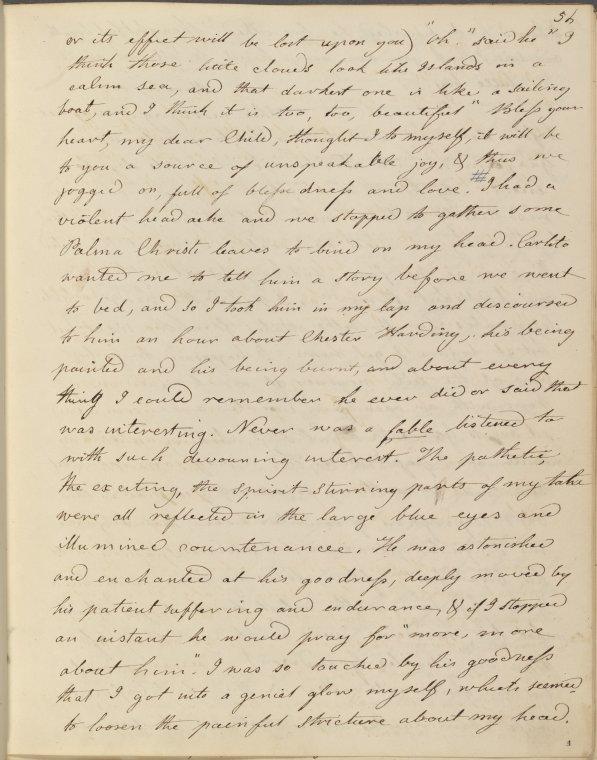 56
or its effect will be lost upon you) "Oh." said he "I
think those little clouds look like Islands in a
calm sea, and that darkest one is like a sailing
boat, and I think it is too, too, beautiful" Bless your
heart, my dear Child, thought I to myself, it will be
to you a source of unspeakable joy, & thus we
jogged on, full of blessedness and love. # I had a
violent head ache and we stopped to gather some
Palma Christi leaves to bind on my head. Carlito
wanted me to tell him a story before we went
to bed, and so I took him in my lap and discoursed
to him an hour about Chester Harding, his being
painted and his being burnt, and about every
thing I could remember he ever did or said that
was interesting. Never was a fable listened to
with such devouring interest. The pathetic,
the exciting, the spirit-stirring parts of my tale
were all reflected in the large blue eyes and
illumined countenance. He was astonished
and enchanted at his goodness, deeply moved by
his patient suffering and endurance, & if I stopped
an instant he would pray for "more, more
about him". I was so touched by his goodness
that I got into a genial glow myself, which seemed
to loosen the painful stricture about my head.